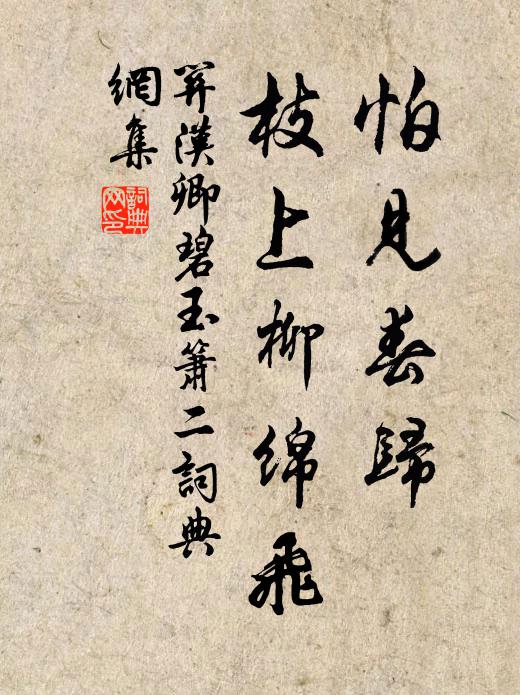 怕見春歸
枝上柳绵飛
關漢卿碧玉簫二詞典
網集
詞典網印